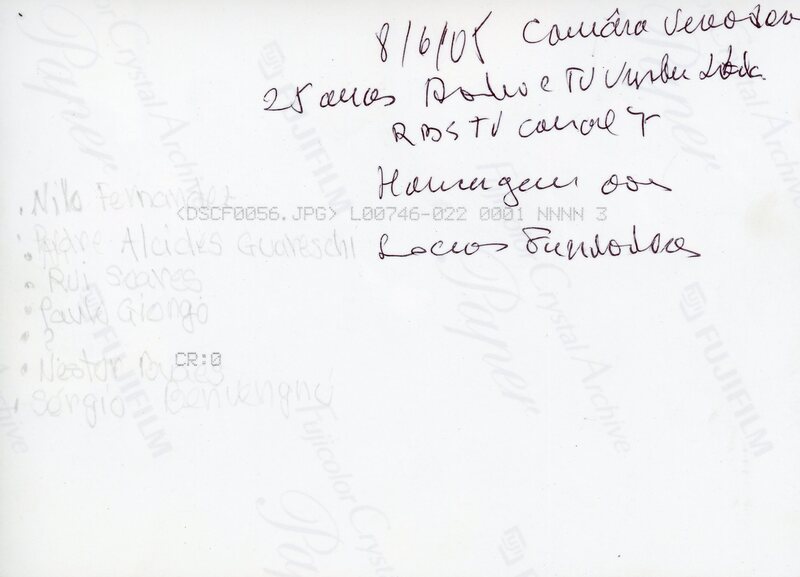 8/6/05 Camára Vereador
25 anos Radio e TV Umbu Ltda.
RBS TV canal 7
Homenagem aos
Socios Fundadores
. Nilo Fernandez
<DSCF0056.JPG> L00746-022 0001 NNNN 3
. Padre Alcides Guareschi
. Rui Soares
. Paulo Giongo
. ?
. Nestor
CR:0
. Sérgio Benvengnú
FUJIFILM
Fujicolor Crystal Archive
Paper